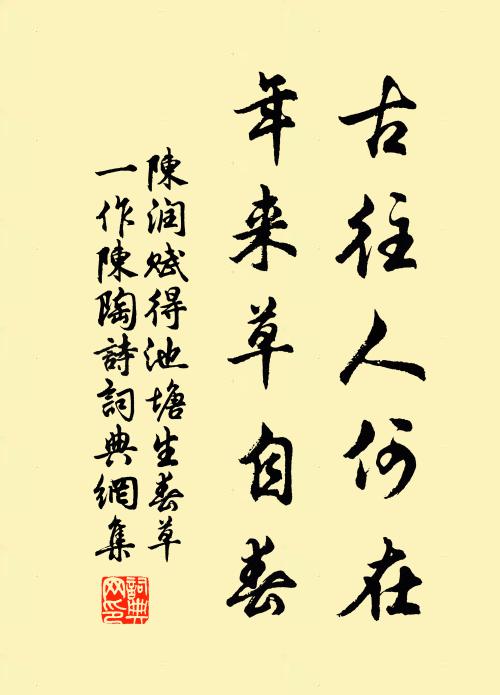 古往人何在
年来草自春
陳润赋得池塘生春草
一作陳陶詩詞典網集
詞典网印